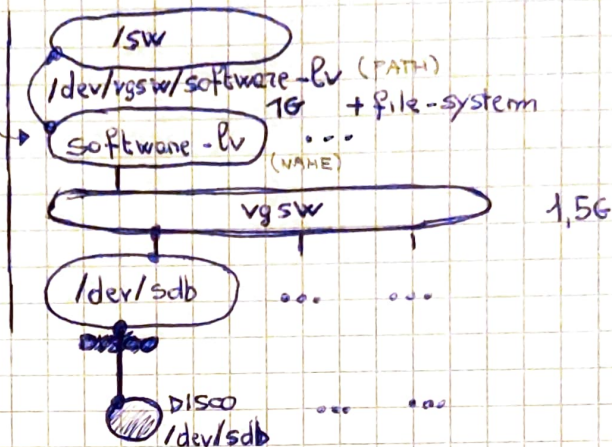 /sw
/dev/vgsw/software-lv (PATH)
1G + file-system
software-lv ...
(NAME)
vgsw 1,5G
/dev/sdb ... ...
DISCO ... ...
/dev/sdb